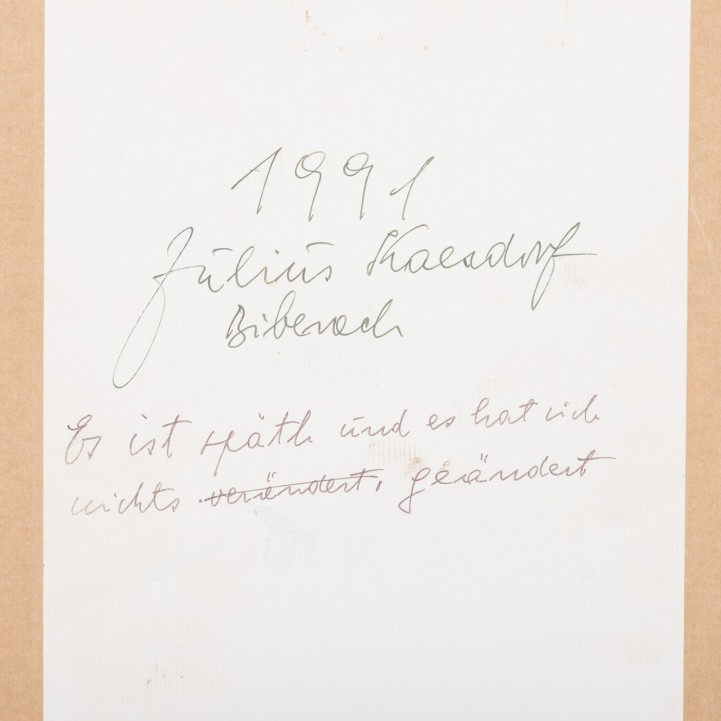 1991
Julius Kaesdorf
Biberach
Es ist späth und es hat sich
nichts verändert, geändert